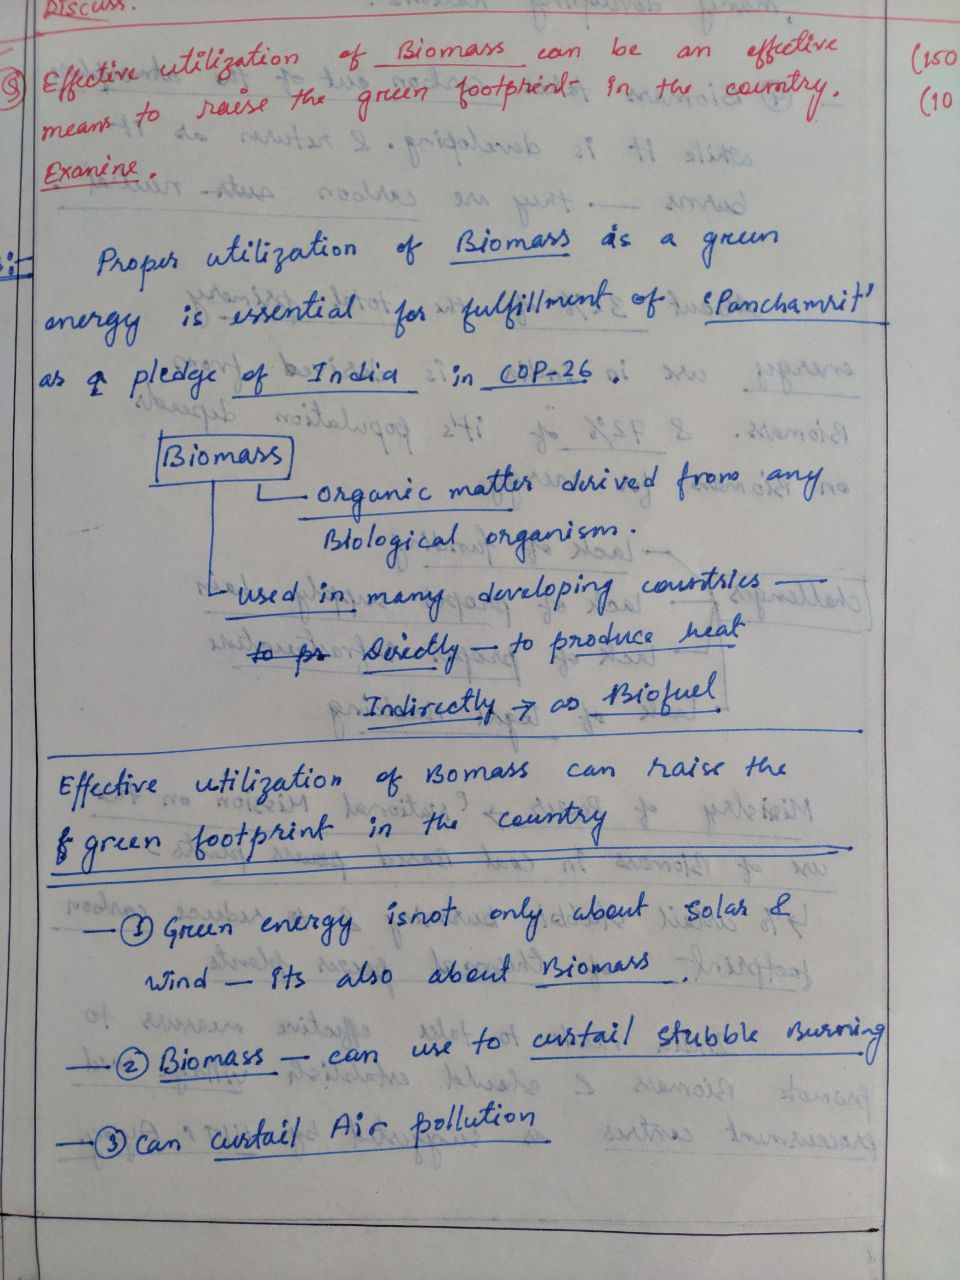 Discuss.
Effective utilization of Biomass can be an effective (150
means to raise the green footprint in the country. (10
Examine.
Proper utilization of Biomass is a green
energy is essential for fulfillment of 'Panchamrit'
as a pledge of India in COP-26.
Biomass
organic matter derived from any
Biological organism.
used in many developing countries —
to pr Directly — to produce heat
Indirectly → as Biofuel
Effective utilization of Bomass can raise the
green footprint in the country
— ① Green energy is not only about Solar &
Wind — its also about Biomass.
— ② Biomass — can use to curtail stubble Burning
— ③ can curtail Air pollution